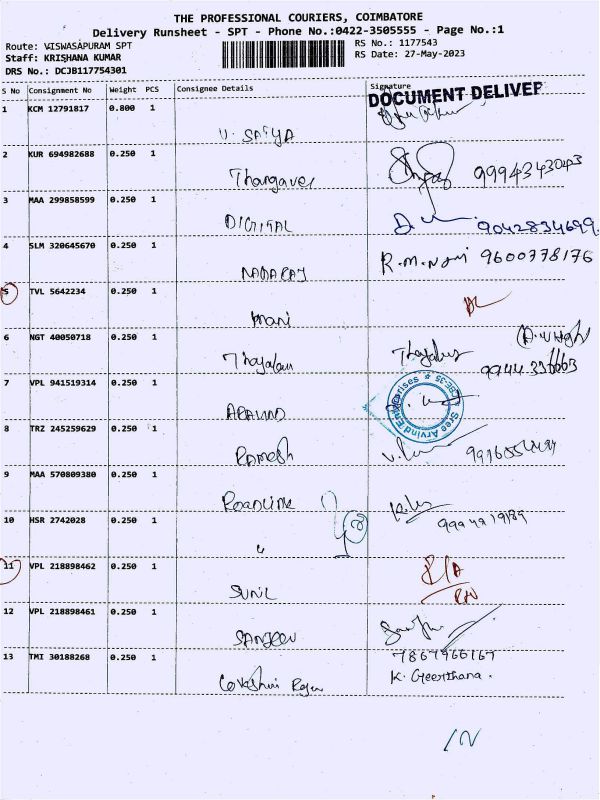 THE PROFESSIONAL COURIERS, COIMBATORE
Delivery Runsheet - SPT - Phone No.:0422-3505555 - Page No.:1
Route: VISWASAPURAM SPT
RS No.: 1177543
Staff: KRISHANA KUMAR
RS Date: 27-May-2023
DRS No.: DCJB117754301
S No Consignment No Weight PCS Consignee Details Signature
DOCUMENT DELIVER
1 KCM 12791817 0.800 1
V. SATYA
2 KUR 694982688 0.250 1
Thangavel 9994343043
3 MAA 299858599 0.250 1
DIGITAL 9042834699
4 SLM 320645670 0.250 1
NAGARAJ R.M.Nani 9600778176
5 TVL 5642234 0.250 1
Mani
6 NGT 40050718 0.250 1
Thayalan
7 VPL 941519314 0.250 1
ARAVIND
Sree Arvind Enterprises CBE-35
8 TRZ 245259629 0.250 1
RAMESH
9 MAA 570809380 0.250 1
Roadlink
10 HSR 2742028 0.250 1
"
11 VPL 218898462 0.250 1
SUNIL
12 VPL 218898461 0.250 1
SANJEEV
13 TMI 30188268 0.250 1
7867966167
K. Geerthana.